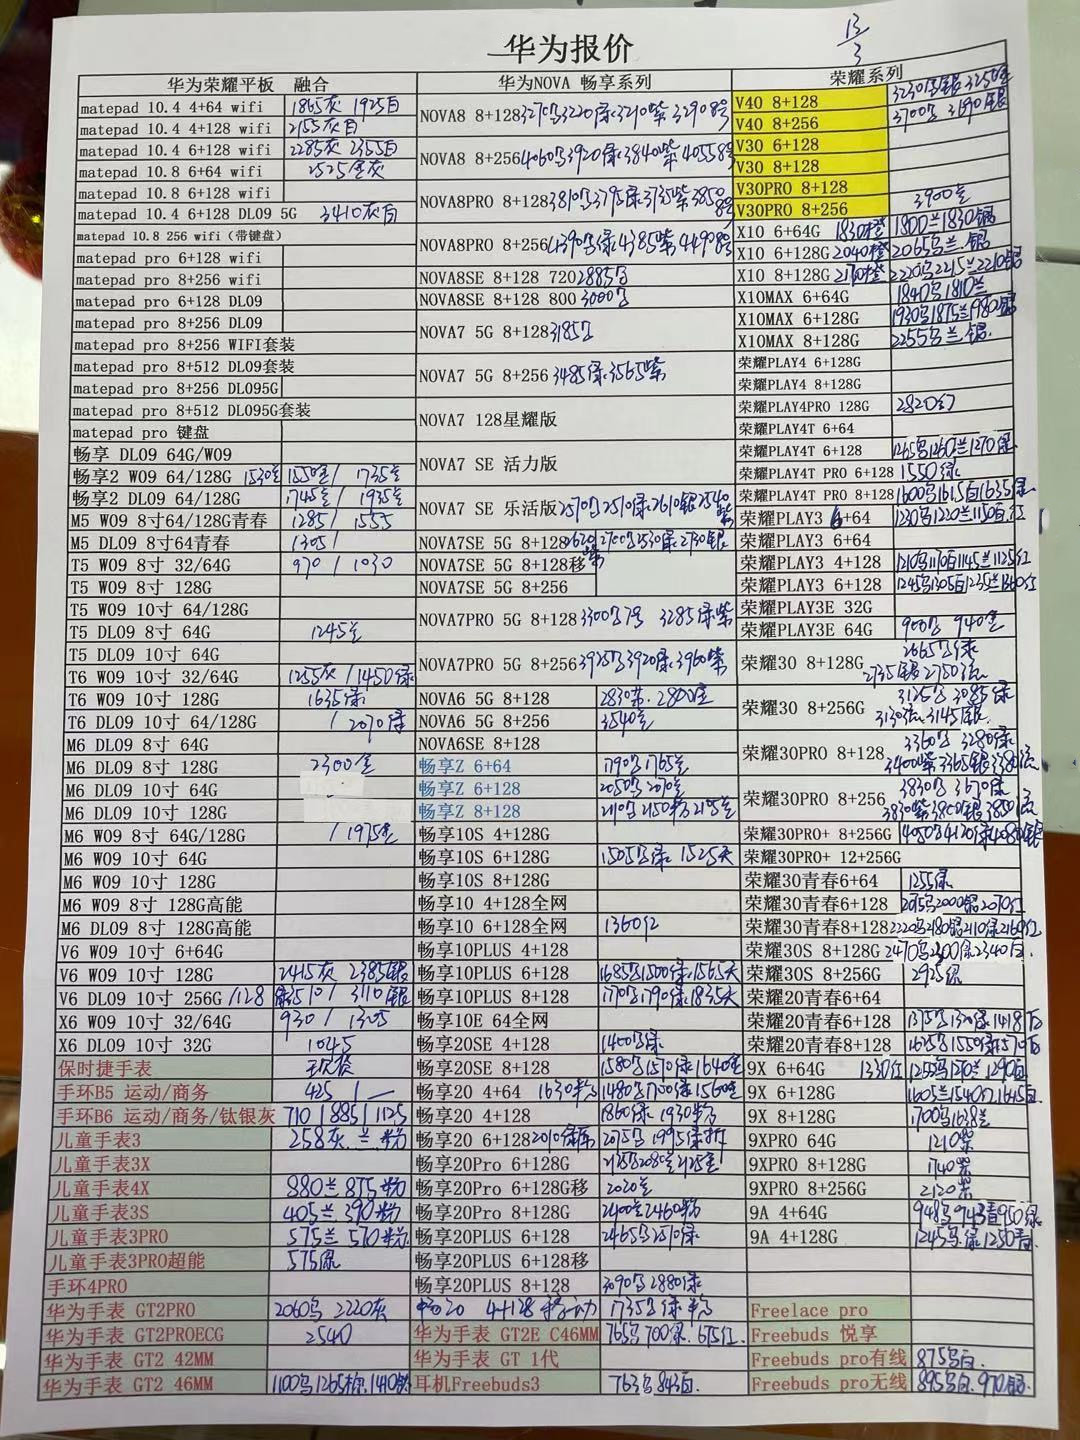 华为报价
13/3
华为荣耀平板 融合
matepad 10.4 4+64 wifi 1865灰 1925白
matepad 10.4 4+128 wifi 2155灰白
matepad 10.4 6+128 wifi 2285灰 2355白
matepad 10.8 6+64 wifi 2525金灰
matepad 10.8 6+128 wifi
matepad 10.4 6+128 DL09 5G 3410灰白
matepad 10.8 256 wifi(带键盘)
matepad pro 6+128 wifi
matepad pro 8+256 wifi
matepad pro 6+128 DL09
matepad pro 8+256 DL09
matepad pro 8+256 WIFI套装
matepad pro 8+512 DL09套装
matepad pro 8+256 DL095G
matepad pro 8+512 DL095G套装
matepad pro 键盘
畅享 DL09 64G/W09
畅享2 W09 64/128G 1530 1550金/ 1735
畅享2 DL09 64/128G 1745 / 1935
M5 W09 8寸64/128G青春 1285/ 1555
M5 DL09 8寸64青春 1305/
T5 W09 8寸 32/64G 970 / 1030
T5 W09 8寸 128G
T5 W09 10寸 64/128G
T5 DL09 8寸 64G 1245
T5 DL09 10寸 64G
T6 W09 10寸 32/64G 1255灰/1450绿
T6 W09 10寸 128G 1635绿
T6 DL09 10寸 64/128G / 2070绿
M6 DL09 8寸 64G
M6 DL09 8寸 128G 2300金
M6 DL09 10寸 64G
M6 DL09 10寸 128G
M6 W09 8寸 64G/128G / 1975金
M6 W09 10寸 64G
M6 W09 10寸 128G
M6 W09 8寸 128G高能
M6 DL09 8寸 128G高能
V6 W09 10寸 6+64G
V6 W09 10寸 128G 2415灰 2385银
V6 DL09 10寸 256G/128 3510/ 3110银
X6 W09 10寸 32/64G 930 / 1305
X6 DL09 10寸 32G 1045
保时捷手表
手环B5 运动/商务 425 / —
手环B6 运动/商务/钛银灰 710/885/1125
儿童手表3 258灰.兰.粉
儿童手表3X
儿童手表4X 880兰 875粉
儿童手表3S 405兰 390粉
儿童手表3PRO 575兰 570粉
儿童手表3PRO超能 575绿
手环4PRO
华为手表 GT2PRO 2060乌 2220灰
华为手表 GT2PROECG 2540
华为手表 GT2 42MM
华为手表 GT2 46MM 1100乌1265棕.1410
华为NOVA 畅享系列
NOVA8 8+128 3270 3220绿.3290紫 3290
NOVA8 8+256 4060 3920绿.3840紫 4055
NOVA8PRO 8+128 3810 3795绿.3735紫.3850
NOVA8PRO 8+256 4390 绿.4385紫.4490
NOVA8SE 8+128 720 2885
NOVA8SE 8+128 800 3000
NOVA7 5G 8+128 3185
NOVA7 5G 8+256 3485绿.3565紫
NOVA7 128星耀版
NOVA7 SE 活力版
NOVA7 SE 乐活版 2570 2510绿.2610银2540
NOVA7SE 5G 8+128 2620 2700 2530绿.2730银
NOVA7SE 5G 8+128移
NOVA7SE 5G 8+256
NOVA7PRO 5G 8+128 3300 3285绿紫
NOVA7PRO 5G 8+256 3925 3920绿.3960紫
NOVA6 5G 8+128 2830 2800
NOVA6 5G 8+256 3540
NOVA6SE 8+128
畅享Z 6+64 1790 1765
畅享Z 6+128 2050 2070
畅享Z 8+128 2110 2150粉 2175
畅享10S 4+128G
畅享10S 6+128G 1505 绿. 1525天
畅享10S 8+128G
畅享10 4+128全网
畅享10 6+128全网 1360红
畅享10PLUS 4+128
畅享10PLUS 6+128 1685 1500绿.1565天
畅享10PLUS 8+128 1770 1790绿.1835天
畅享10E 64全网
畅享20SE 4+128 1400 绿.
畅享20SE 8+128 1580 1570绿.1640金
畅享20 4+64 1630粉 1480 1700绿.1560
畅享20 4+128 1860绿.1930粉
畅享20 6+128 2010 2075 1995绿
畅享20Pro 6+128G 2135 2085 2125
畅享20Pro 6+128G移 2020
畅享20Pro 8+128G 2400 2460粉
畅享20PLUS 6+128 2465 2510绿
畅享20PLUS 6+128移
畅享20PLUS 8+128 3090 2880绿
畅20 4+128 移动 1735 绿.粉
华为手表 GT2E C46MM 765乌700绿.675红
华为手表 GT 1代
耳机Freebuds3 763乌843白.
荣耀系列
V40 8+128 3230 银.3250
V40 8+256 3700 3690银
V30 6+128
V30 8+128
V30PRO 8+128
V30PRO 8+256 3900
X10 6+64G 1830橙 1800兰1830银
X10 6+128G 2040橙 2065乌兰.银
X10 8+128G 2170橙 2220乌2215兰2210银
X10MAX 6+64G 1840乌1810兰
X10MAX 6+128G 1930乌1875兰1980银
X10MAX 8+128G 2255乌兰.银.
荣耀PLAY4 6+128G
荣耀PLAY4 8+128G
荣耀PLAY4PRO 128G 2820幻
荣耀PLAY4T 6+64
荣耀PLAY4T 6+128 1265乌1260兰1270绿
荣耀PLAY4T PRO 6+128 1550绿
荣耀PLAY4T PRO 8+128 1600乌1615白1635绿
荣耀PLAY3 6+64 1230乌1220兰1150白.红
荣耀PLAY3 6+64
荣耀PLAY3 4+128 1210乌1170白1145兰1125红
荣耀PLAY3 6+128 1245乌1305白1235兰1360红
荣耀PLAY3E 32G
荣耀PLAY3E 64G 900 940金
荣耀30 8+128G 2665 绿
2735银 2750
荣耀30 8+256G 3125 3085绿
3130 3145银.
荣耀30PRO 8+128 3360 3280绿
3400紫3365银3380
荣耀30PRO 8+256 3830 3670绿
3830紫3800银3850
荣耀30PRO+ 8+256G 4050 4120绿4080银
荣耀30PRO+ 12+256G
荣耀30青春6+64 1255绿
荣耀30青春6+128 2075乌2000银2070红
荣耀30青春8+128 2220乌2180银2110绿2160红
荣耀30S 8+128G 2470 2300绿2340白.
荣耀30S 8+256G 2925银
荣耀20青春6+64
荣耀20青春6+128 1375 1320绿.1418
荣耀20青春8+128 1625 1550绿1570
9X 6+64G 1330红 1255乌1270兰1290白
9X 6+128G 1605兰1540红1645白
9X 8+128G 1700乌1638兰
9XPRO 64G 1210紫
9XPRO 8+128G 1740紫
9XPRO 8+256G 2120紫
9A 4+64G 948乌943青950绿
9A 4+128G 1245乌绿1250青.
Freelace pro
Freebuds 悦享
Freebuds pro有线 875乌白.
Freebuds pro无线 895乌白.970银